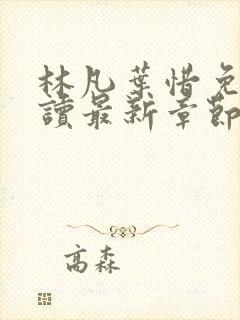 林凡葉惜免
讀最新章節
高森